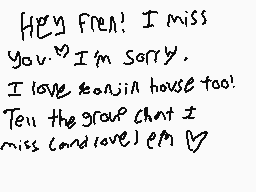 Hey Fren! I miss
you.♡ I'm sorry.
I love konjin house too!
Tell the group chat I
miss (and love) em ♡